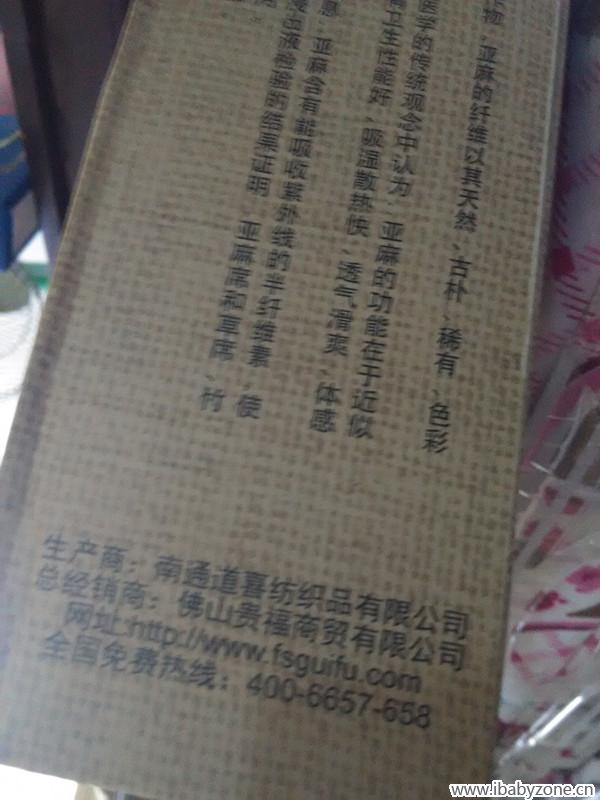 物、亚麻的纤维以其天然、古朴、稀有、色彩
医学的传统观念中认为，亚麻的功能在于近似
卫生性能好、吸湿散热快、透气滑爽、体感
亚麻含有能吸收紫外线的半纤维素，使
血液检验的结果证明，亚麻席和草席、竹
生产商：南通道喜纺织品有限公司
总经销商：佛山贵福商贸有限公司
网址:http://www.fsguifu.com
全国免费热线：400-6657-658
www.ibabyzone.cn